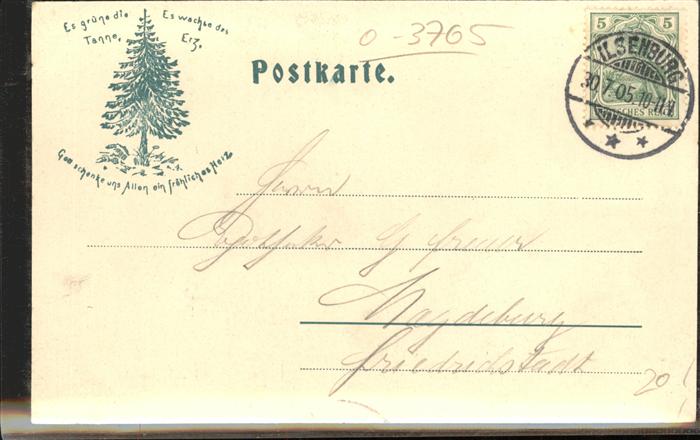 Es grüne die Tanne,
Es wachse das Erz,
Gott schenke uns Allen ein fröhliches Herz
Postkarte.
0-3765
5 5
DEUTSCHES REICH
ILSENBURG
30/7.05.10-11V
Herrn
Apotheker G
Magdeburg
Friedrichstadt
20